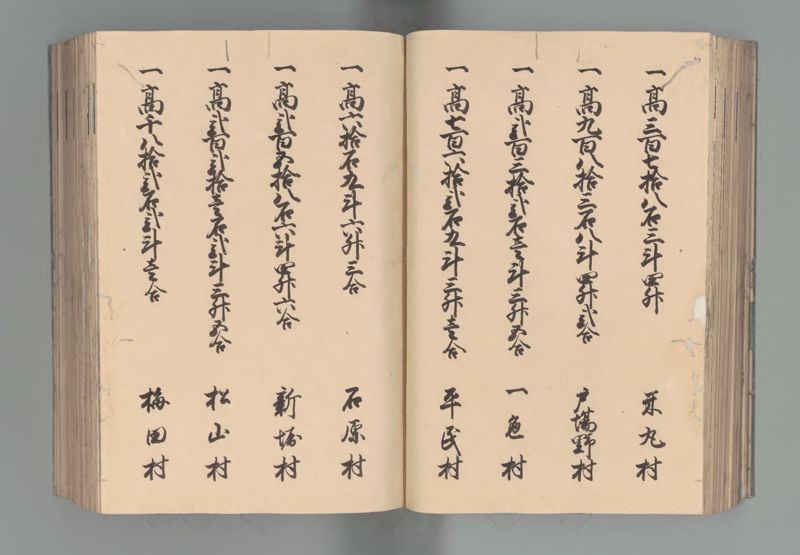 一高三百七拾八石三斗四升 米丸村
一高九百八拾三石八斗四升弐合 戸場野村
一高弐百三拾弐石壱斗三升五合 一色村
一高七百六拾弐石九斗三升壱合 平民村
一高六拾石九斗六升三合 石原村
一高弐百五拾八石六斗四升六合 新堀村
一高弐百弐拾壱石弐斗三升五合 松山村
一高千八拾弐石弐斗壱合 梅田村